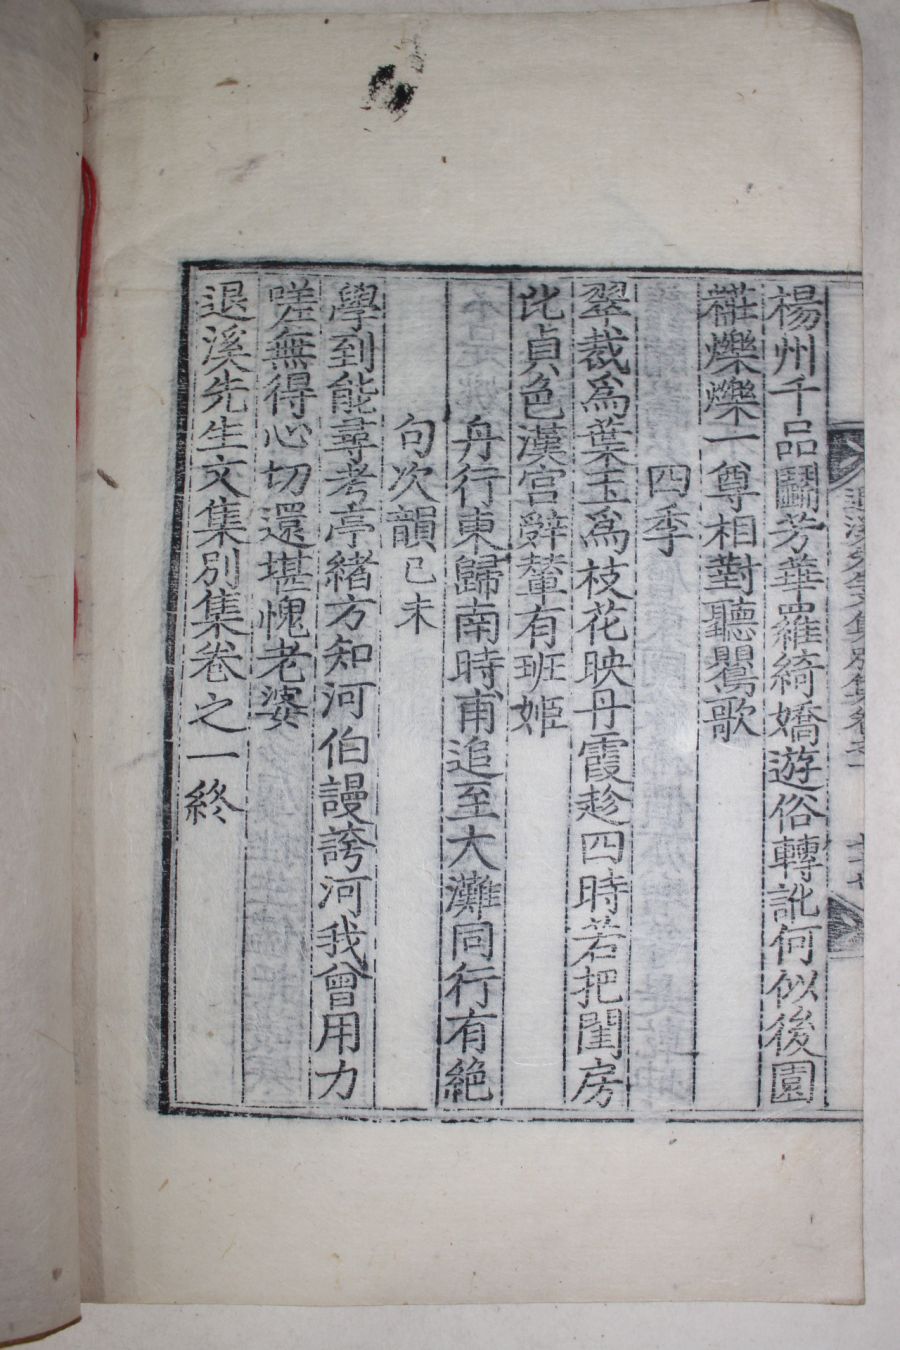 楊州千品鬪芳華羅綺嬌遊俗轉訛何似後園
欉爍爍一尊相對聽鸎歌
四季
翠裁爲葉玉爲枝花映丹霞趁四時若把閨房
比貞色漢宮辭輦有班姬
舟行東歸南時甫追至大灘同行有絶
句次韻己未
學到能尋考亭緖方知河伯謾誇河我曾用力
嗟無得心切還堪愧老婆
退溪先生文集別集卷之一終